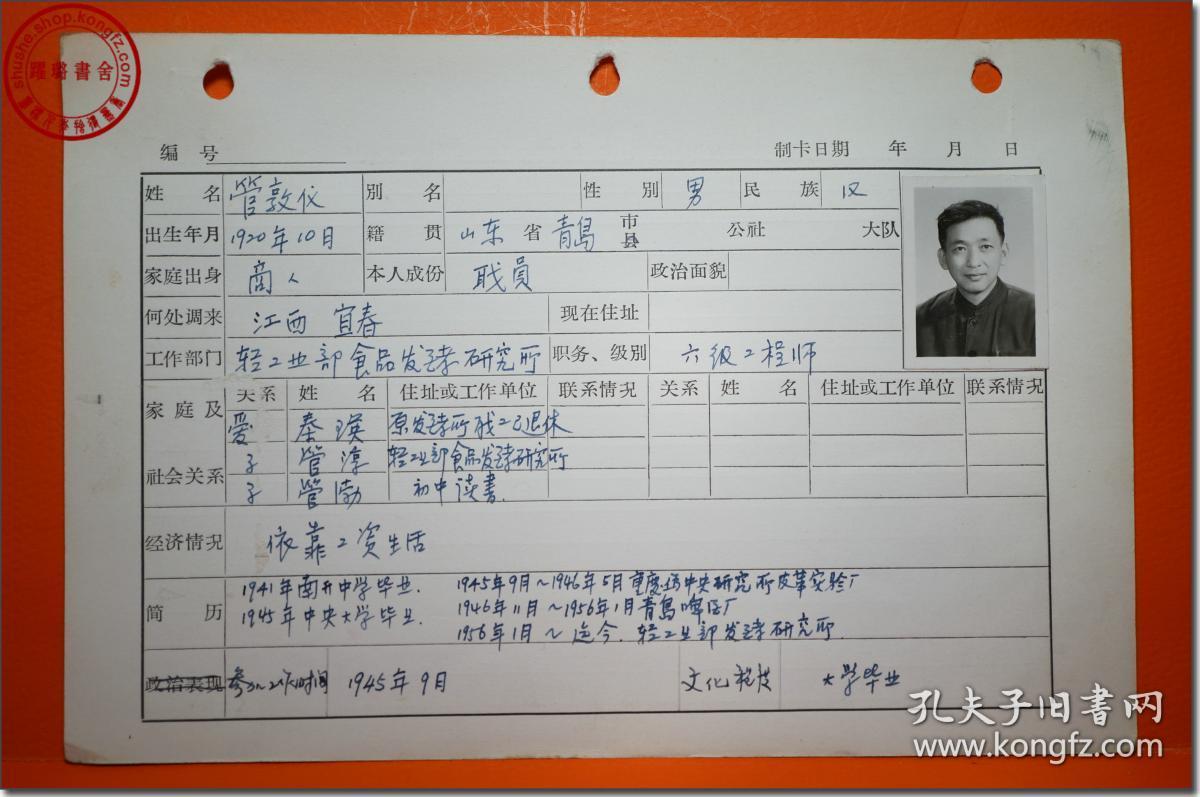 shushe.shop.kongfz.com
躍璐書舍
编 号
制卡日期 年 月 日
姓 名 管敦仪 别 名 性 别 男 民 族 汉
出生年月 1920年10月 籍 贯 山东 省 青岛 市 县 公社 大队
家庭出身 商人 本人成份 职员 政治面貌
何处调来 江西 宜春 现在住址
工作部门 轻工业部食品发酵研究所 职务、级别 六级工程师
家庭及社会关系 关系 姓 名 住址或工作单位 联系情况 关系 姓 名 住址或工作单位 联系情况
爱 秦瑛 原发酵所职工已退休
子 管淳 轻工业部食品发酵研究所
子 管渤 初中读書.
经济情况 依靠工资生活
简 历 1941年南开中学毕业. 1945年9月~1946年5月重庆伪中央研究所皮革实验厂
1945年中央大学毕业. 1946年11月~1956年1月青岛啤酒厂
1956年1月~迄今.轻工业部发酵研究所.
政治表现 参加工作时间 1945年9月 文化程度 大学毕业
孔夫子旧书网
www.kongfz.com